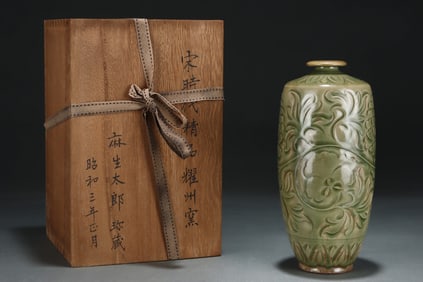 宋時代精品耀州窯
麻生太郎 珍蔵
昭和三年正月